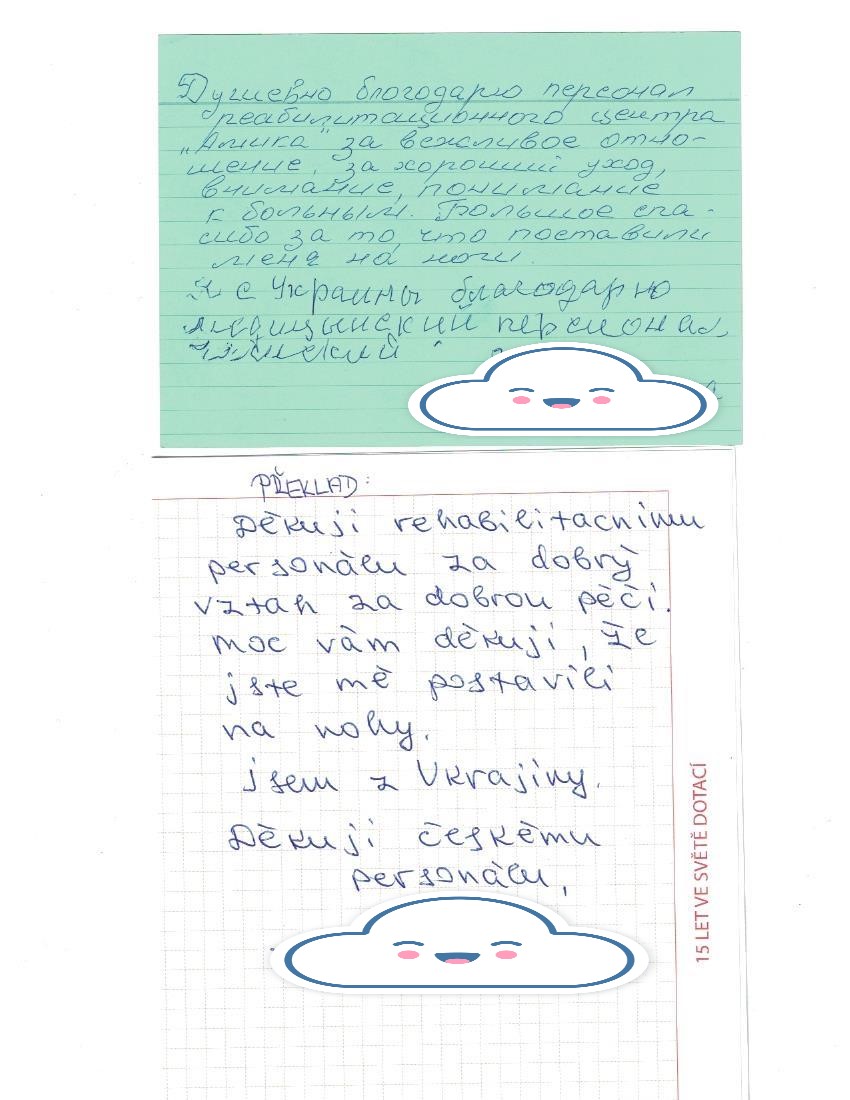 Душевно благодарю персонал
реабилитационного центра
„Амика" за вежливое отно-
шение, за хороший уход,
внимание, понимание
к больным. Большое спа-
сибо за то, что поставили
меня на ноги.
Я с Украины благодарно
медицынский персонал
PŘEKLAD:
Děkuji rehabilitacnimu
personálu za dobrý
vztah za dobrou péči.
moc vám děkuji, že
jste mě postavili
na nohy.
jsem z Ukrajiny.
Děkuji českému
personálu,
15 LET VE SVĚTĚ DOTACÍ